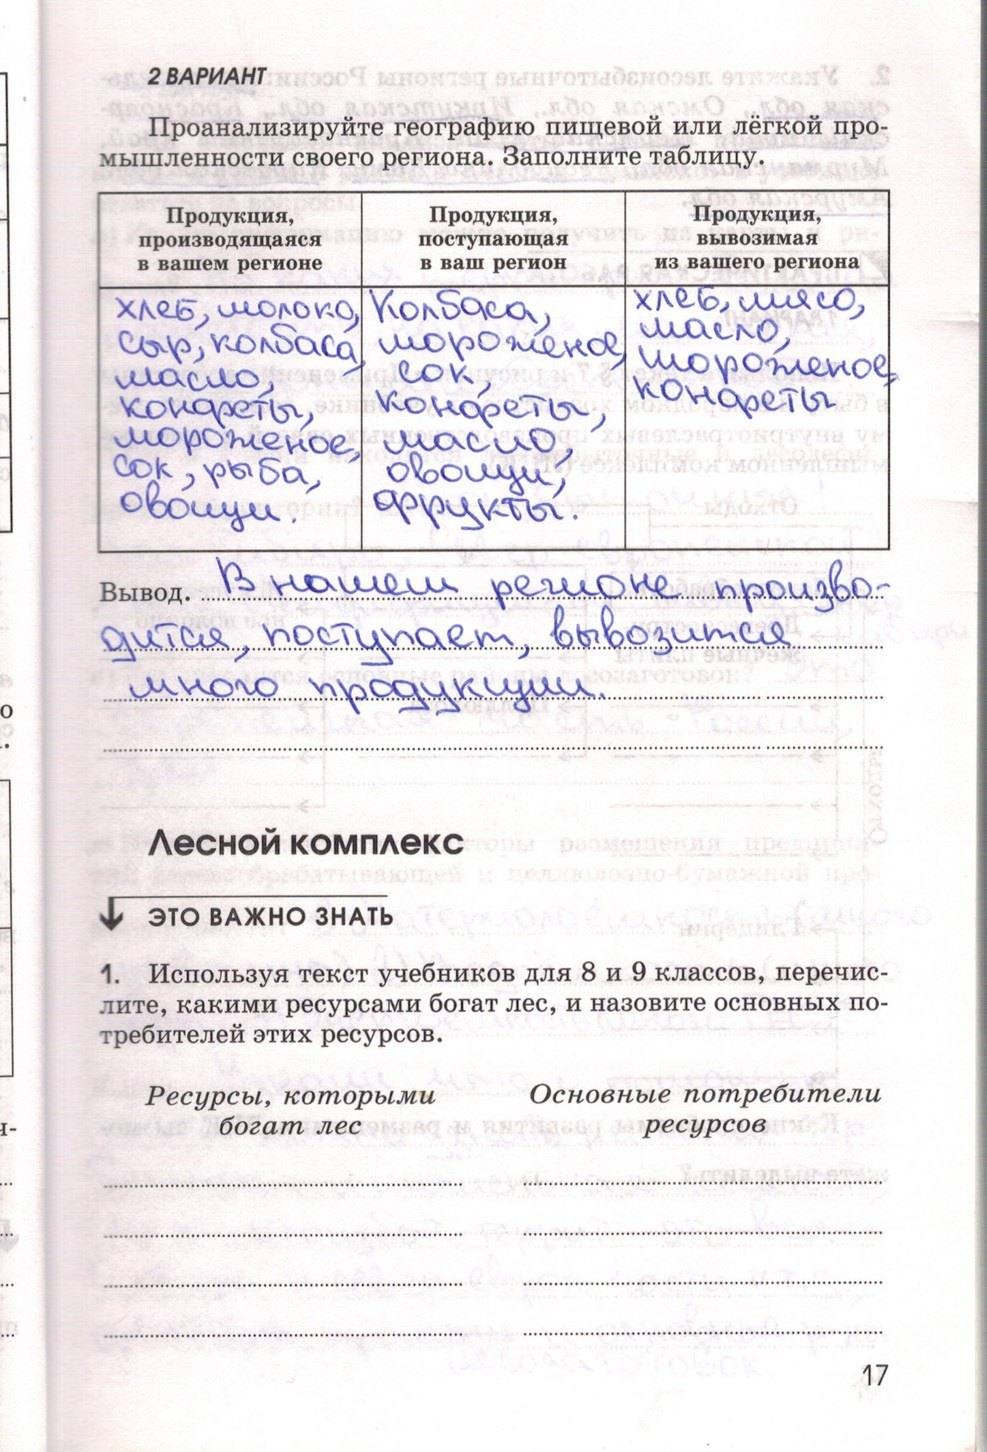 2 ВАРИАНТ
Проанализируйте географию пищевой или лёгкой про-
мышленности своего региона. Заполните таблицу.
Продукция,
производящаяся
в вашем регионе
Продукция,
поступающая
в ваш регион
Продукция,
вывозимая
из вашего региона
хлеб, молоко,
сыр, колбаса,
масло,
конфеты,
мороженое,
сок, рыба,
овощи.
Колбаса,
мороженое,
сок,
конфеты,
масло,
овощи,
фрукты.
хлеб, мясо,
масло,
мороженое,
конфеты
Вывод. В нашем регионе произво-
дится, поступает, вывозится
много продукции.
Лесной комплекс
ЭТО ВАЖНО ЗНАТЬ
1. Используя текст учебников для 8 и 9 классов, перечис-
лите, какими ресурсами богат лес, и назовите основных по-
требителей этих ресурсов.
Ресурсы, которыми
богат лес
Основные потребители
ресурсов
17